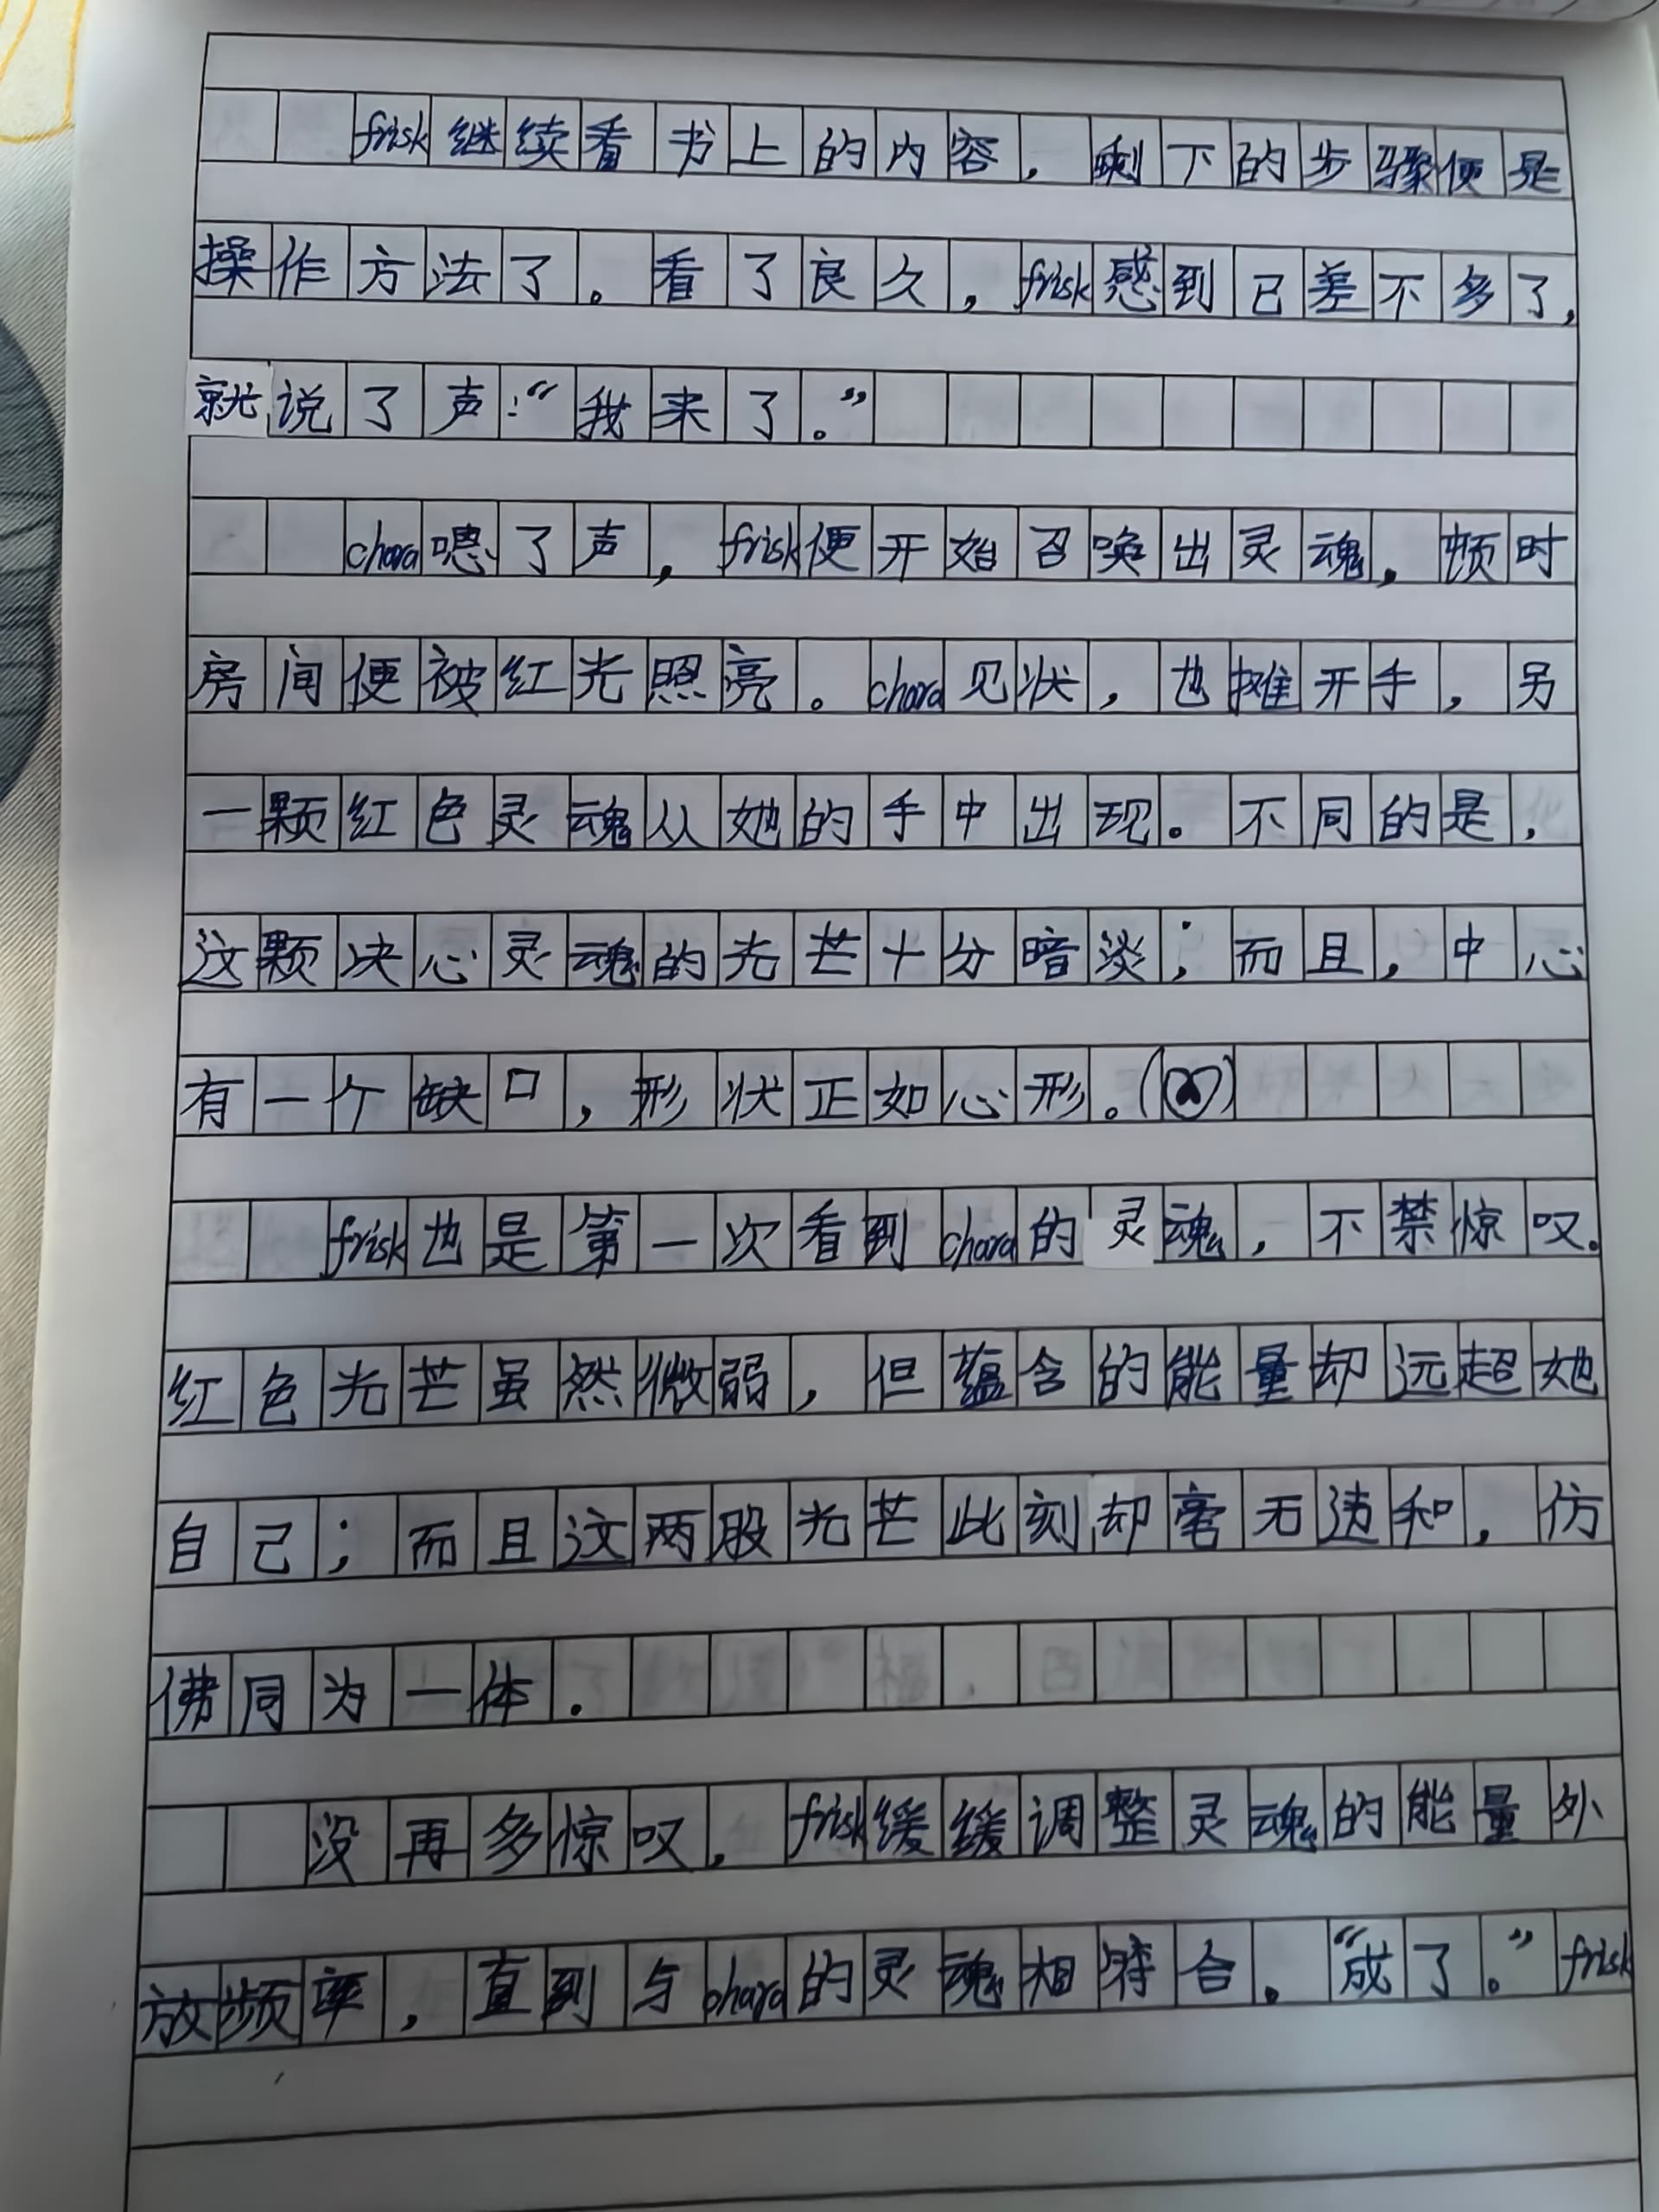 frisk继续看书上的内容，剩下的步骤便是
操作方法了。看了良久，frisk感到已差不多了，
就说了声：“我来了。”
chara嗯了声，frisk便开始召唤出灵魂，顿时
房间便被红光照亮。chara见状，也摊开手，另
一颗红色灵魂从她的手中出现。不同的是，
这颗决心灵魂的光芒十分暗淡；而且，中心
有一个缺口，形状正如心形。（）
frisk也是第一次看到chara的灵魂，不禁惊叹。
红色光芒虽然微弱，但蕴含的能量却远超她
自己；而且这两股光芒此刻却毫无违和，仿
佛同为一体.
没再多惊叹，frisk缓缓调整灵魂的能量外
放频率，直到与chara的灵魂相符合。“成了。”frisk